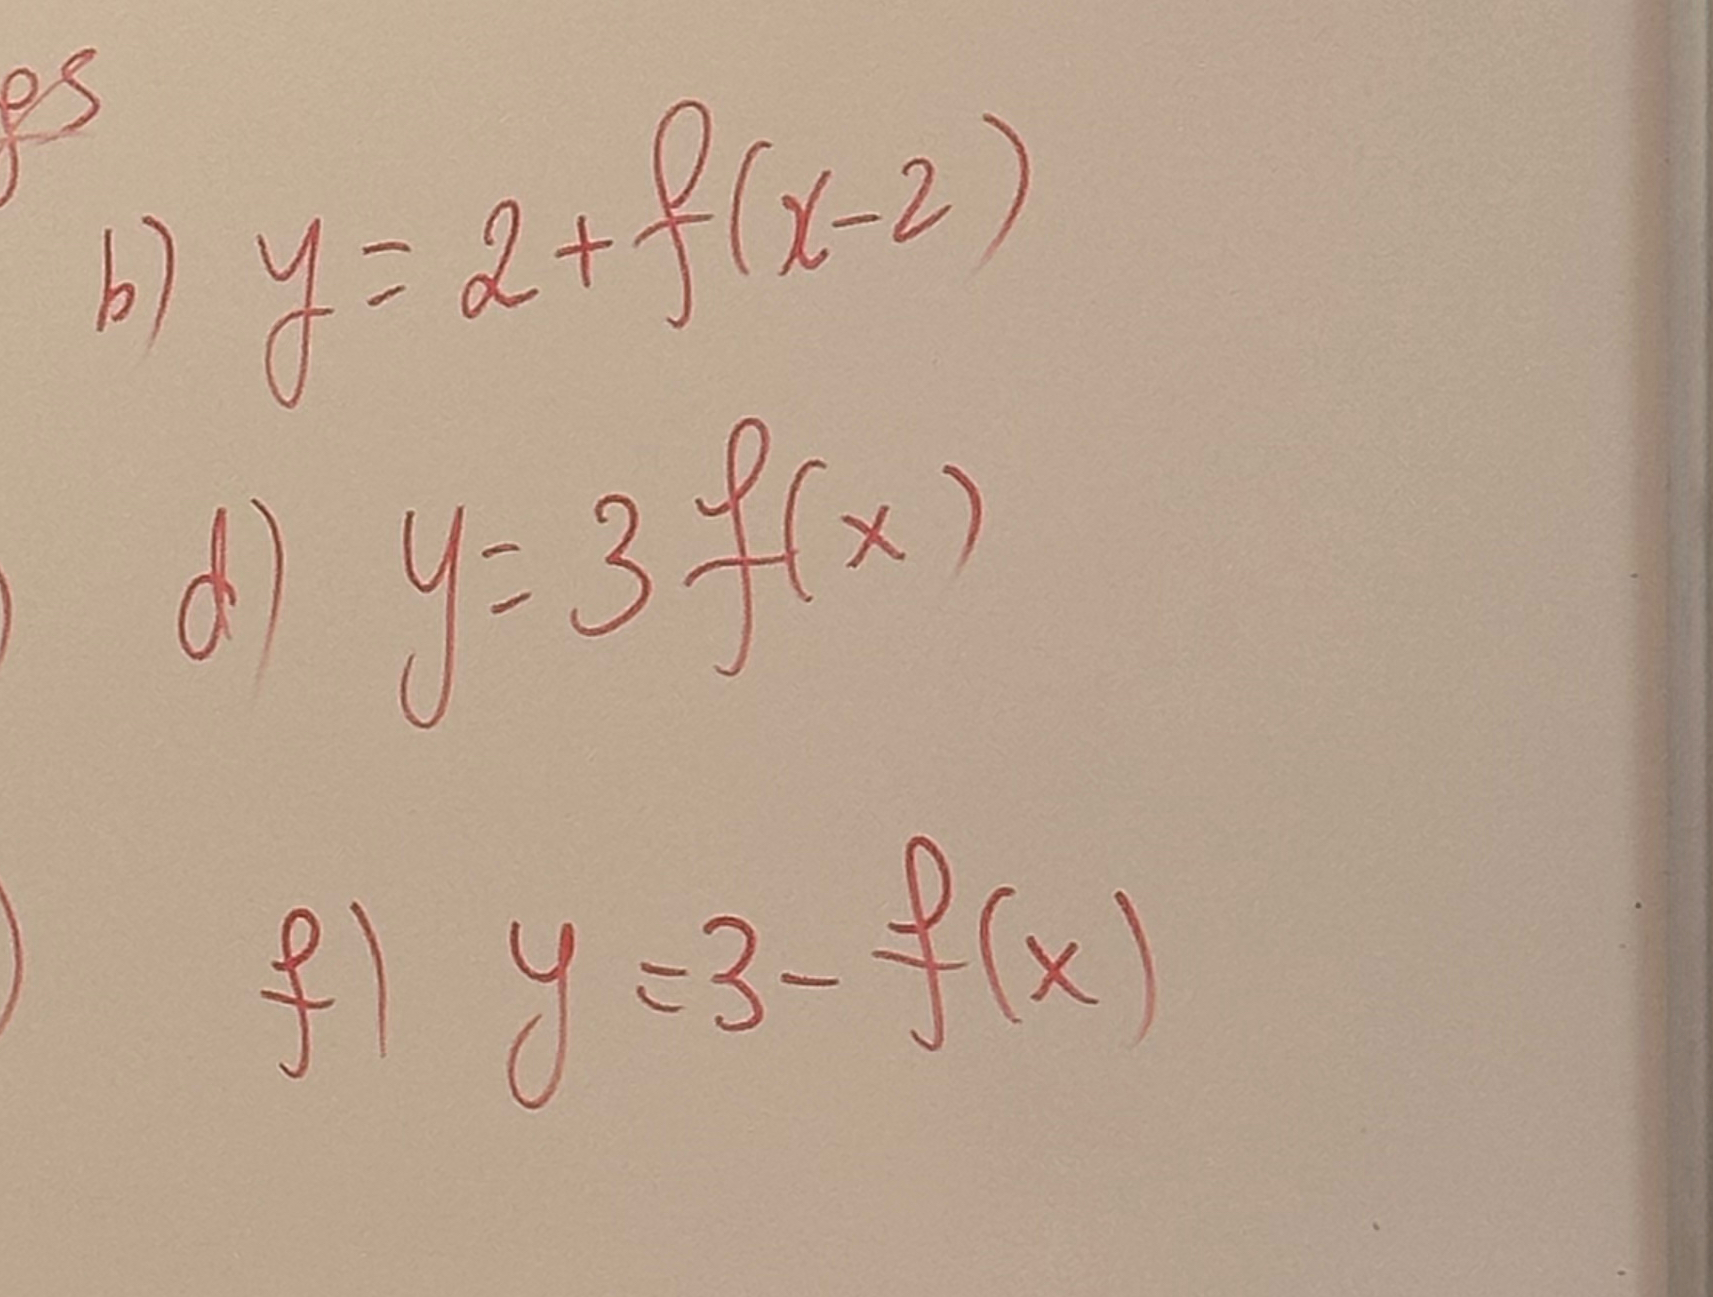 b) y = 2 + f(x-2)
d) y = 3 f(x)
f) y = 3 - f(x)